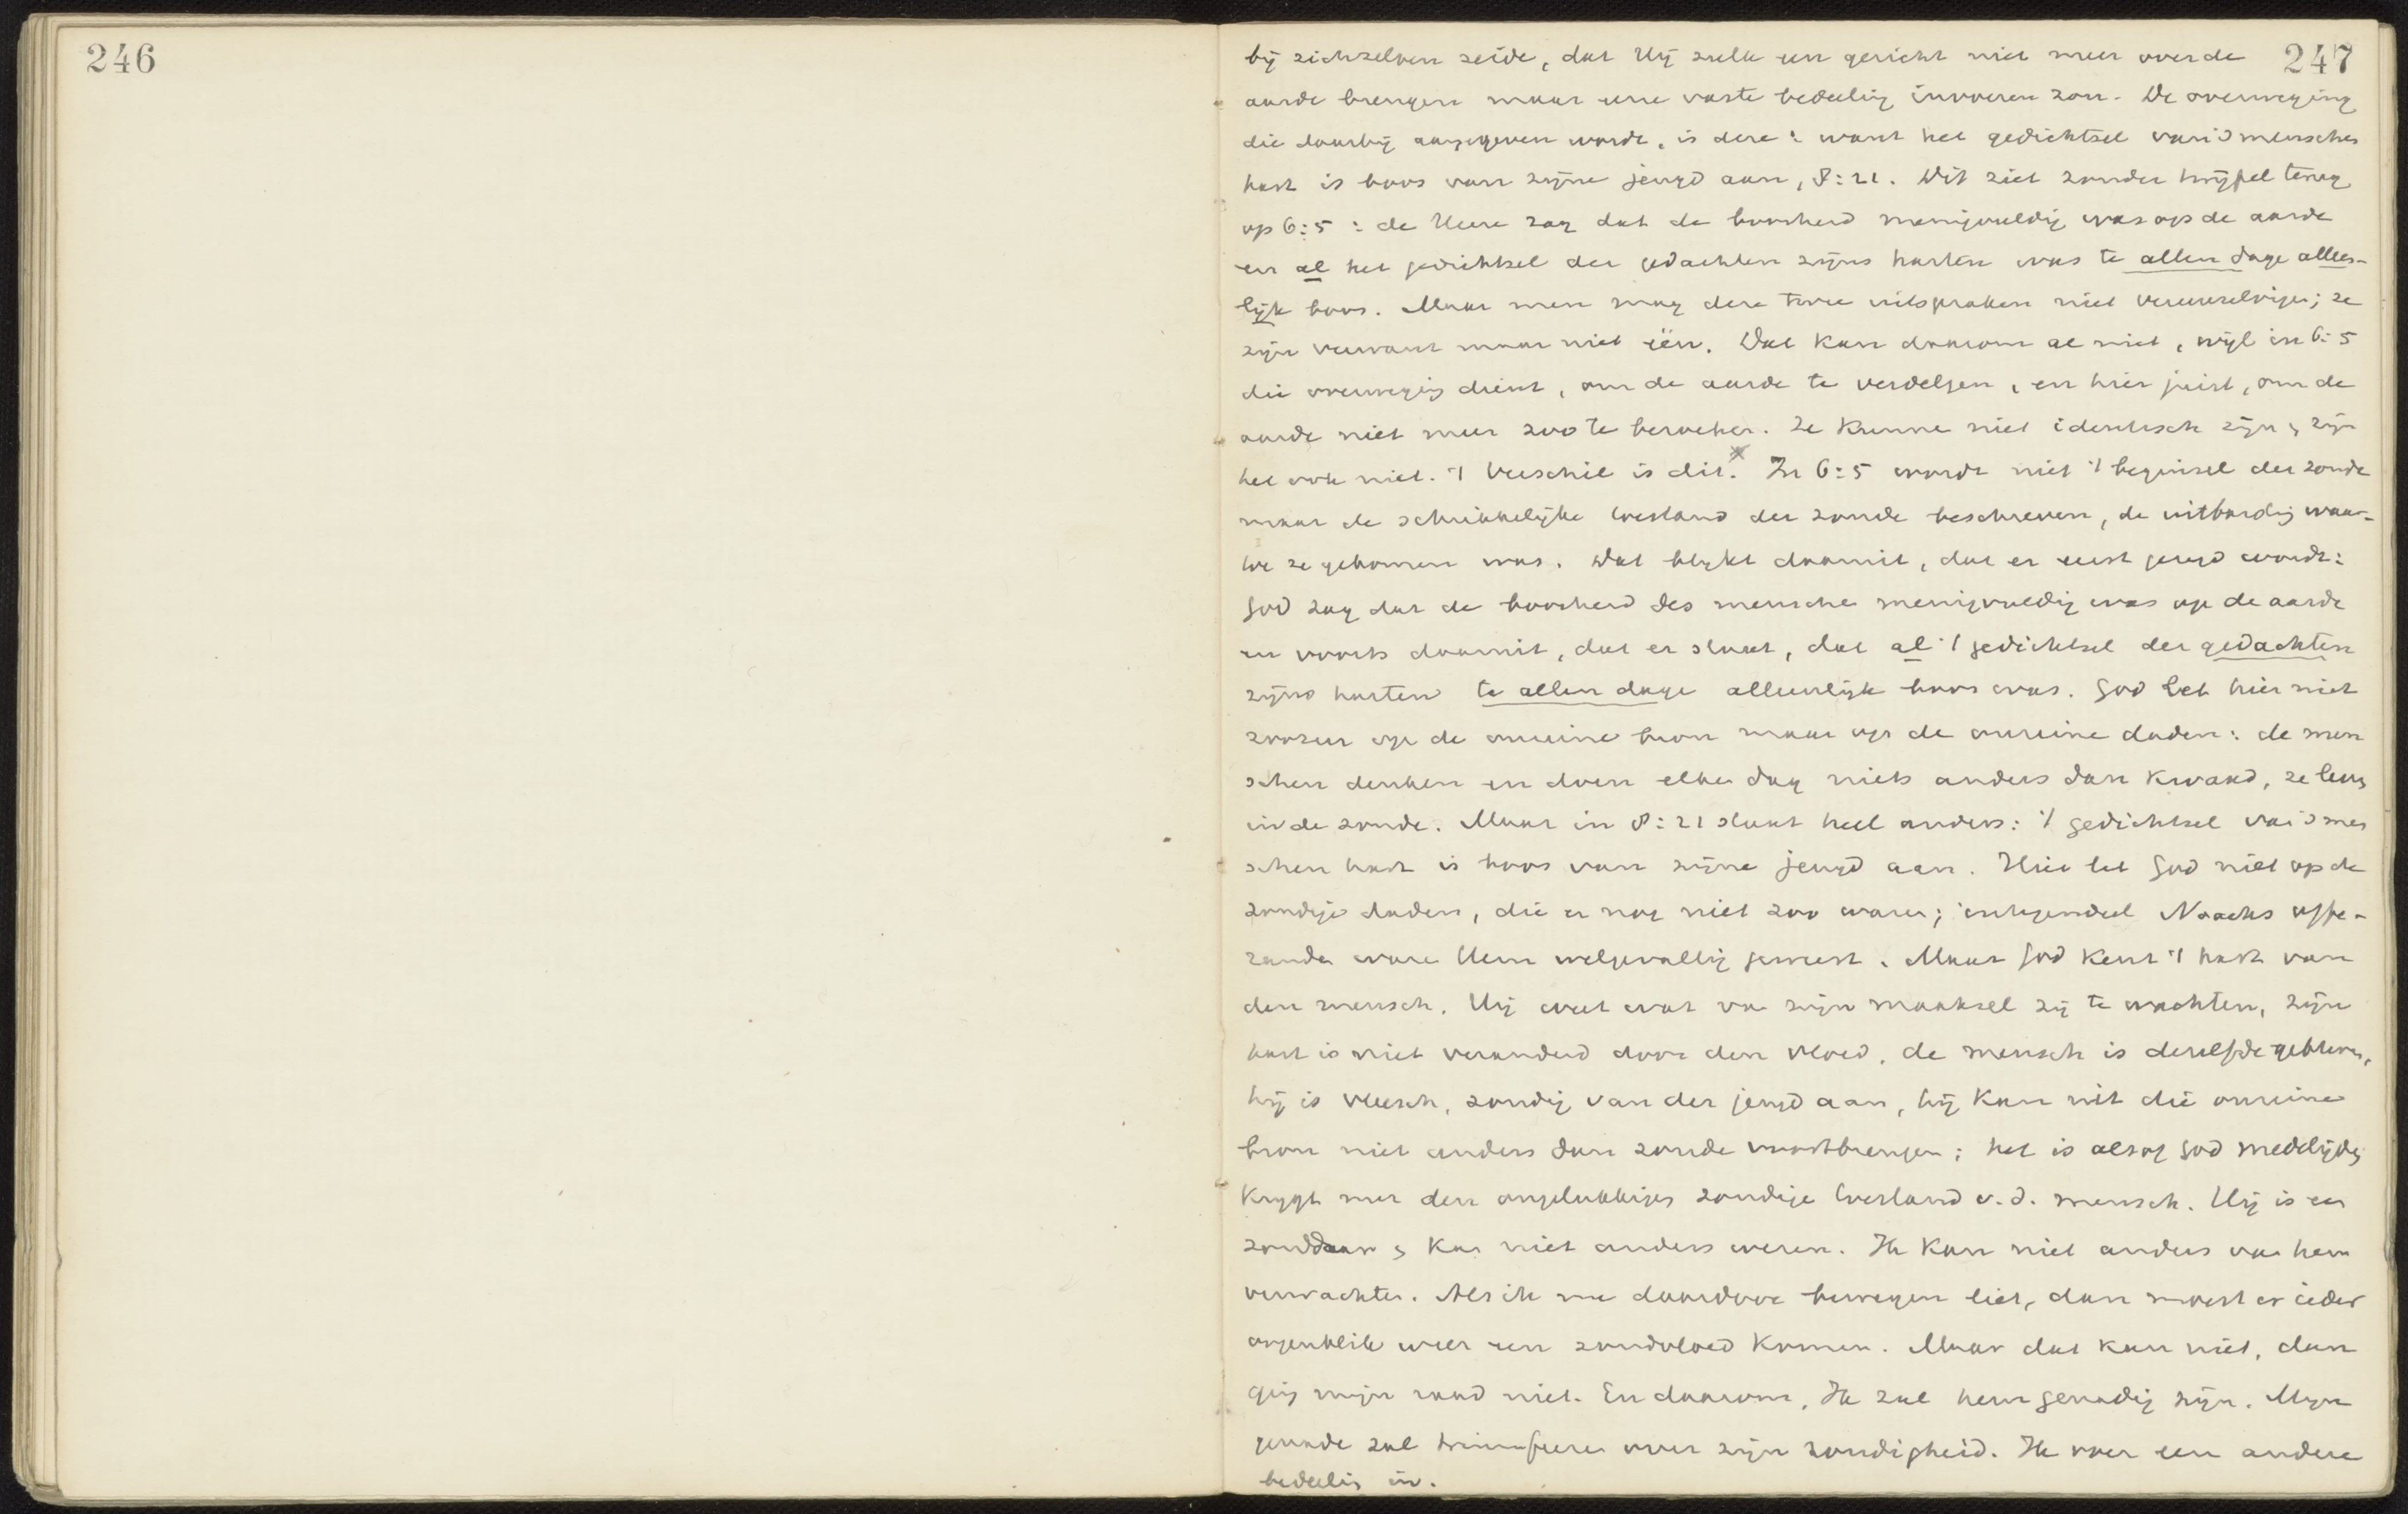 246
247
bij zichzelven zeide, dat Hij zulk een gericht niet meer over de
aarde brengen maar eene vaste bedeeling invoeren zou. De overweging
die daarbij aangegeven wordt, is deze: want het gedichtsel van 's menschen
hart is boos van zijne jeugd aan, 8:21. Dit ziet zonder twijfel terug
op 6:5: de Heere zag dat de boosheid menigvuldig was op de aarde
en al het gedichtsel der gedachten zijns harten was te allen dage alleen-
lijk boos. Maar men mag deze twee uitspraken niet vereenzelvigen; ze
zijn verwant maar niet één. Dat kan daarom al niet, wijl in 6:5
die overweging dient, om de aarde te verdelgen, en hier juist, om de
aarde niet meer zoo te bezoeken. Ze kunnen niet identisch zijn & zijn
het ook niet. 't Verschil is dit. In 6:5 wordt niet 't beginsel der zonde
maar de schrikkelijke toestand der zonde beschreven, de uitbarsting waar-
toe ze gekomen was. Dat blijkt daaruit, dat er eerst gezegd wordt:
God zag dat de boosheid des menschen menigvuldig was op de aarde
en voorts daaruit, dat er staat, dat al 't gedichtsel der gedachten
zijns harten te allen dage alleenlijk boos was. God let hier niet
zoozeer op de onreine bron maar op de onreine daden: de men
schen denken en doen elken dag niets anders dan kwaad, ze leven
in de zonde. Maar in 8:21 staat heel anders: 't gedichtsel van 's men
schen hart is boos van zijne jeugd aan. Hier let God niet op de
zondige daden, die er nog niet zoo waren; integendeel Noachs offe-
rande ware Hem welgevallig geweest. Maar God kent 't hart van
den mensch. Hij weet wat van zijn maaksel zij te wachten, zijn
hart is niet veranderd door den vloed, de mensch is dezelfde gebleven,
hij is vleesch, zondig van der jeugd aan, hij kan uit die onreine
bron niet anders dan zonde voortbrengen; het is alsof God medelijden
krijgt met den ongelukkigen zondige toestand v.d. mensch. Hij is een
zondaar & kan niet anders wezen. Ik kan niet anders van hem
verwachten. Als ik me daardoor bewegen liet, dan moest er ieder
oogenblik weer een zondvloed komen. Maar dat kan niet, dan
ging mijn raad niet. En daarom, Ik zal hem genadig zijn. Mijn
genade zal triumfeeren over zijn zondigheid. Ik voer een andere
bedeeling in.